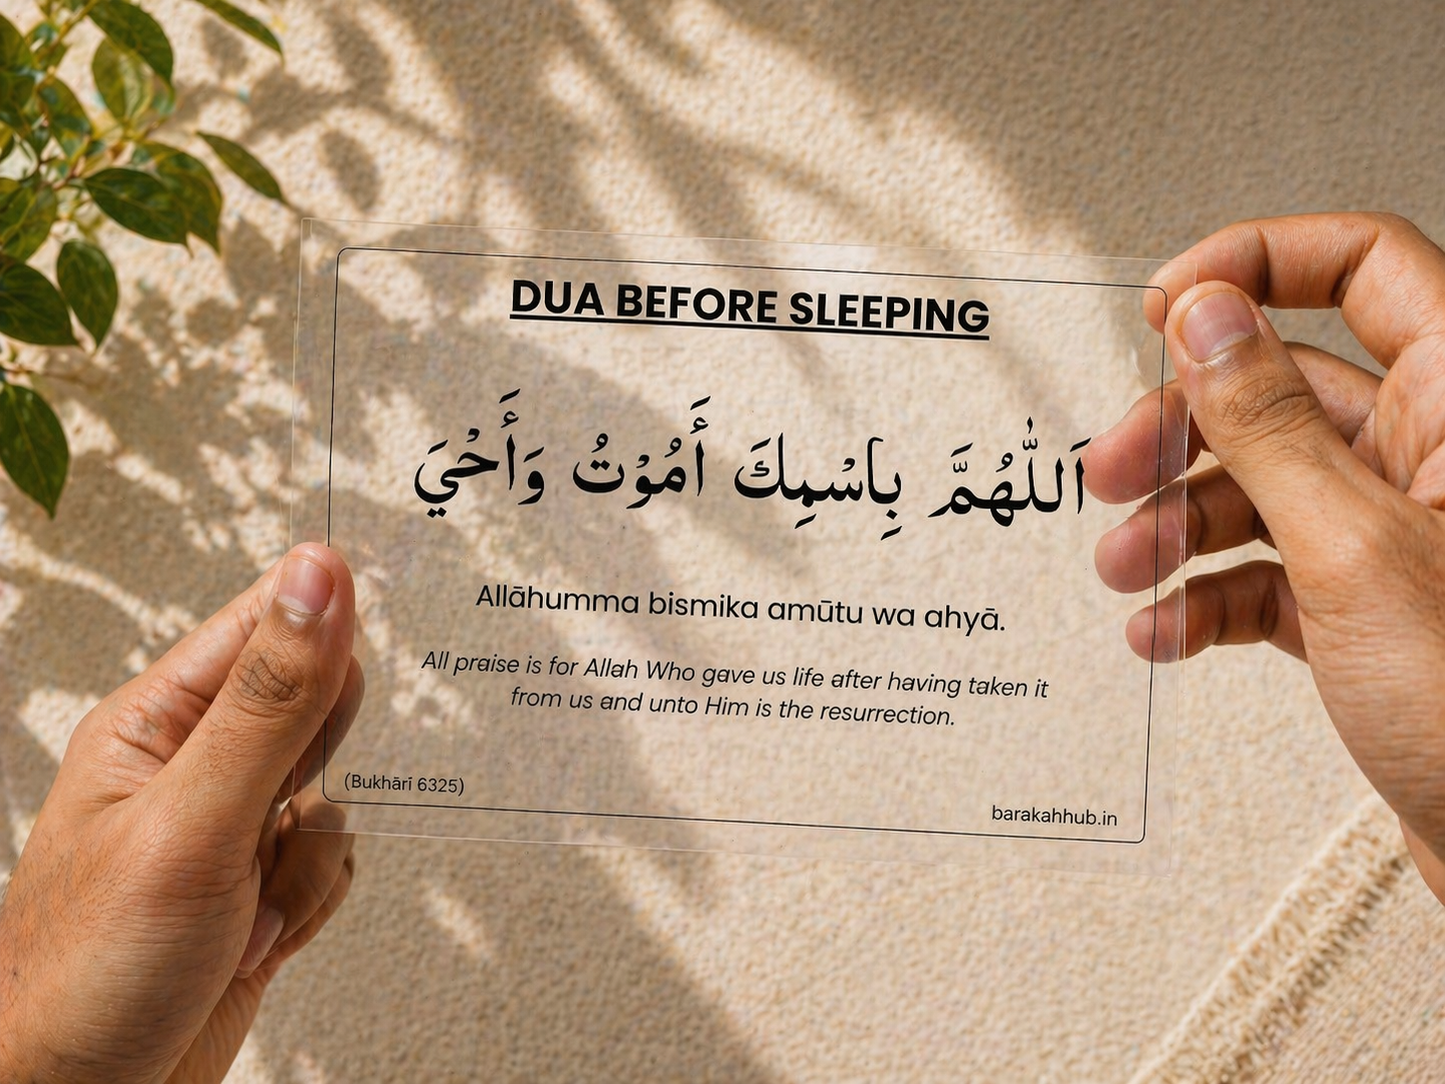 DUA BEFORE SLEEPING
اَللّٰهُمَّ بِاسْمِكَ أَمُوْتُ وَأَحْيَي
Allāhumma bismika amūtu wa ahyā.
All praise is for Allah Who gave us life after having taken it
from us and unto Him is the resurrection.
(Bukhārī 6325)
barakahhub.in